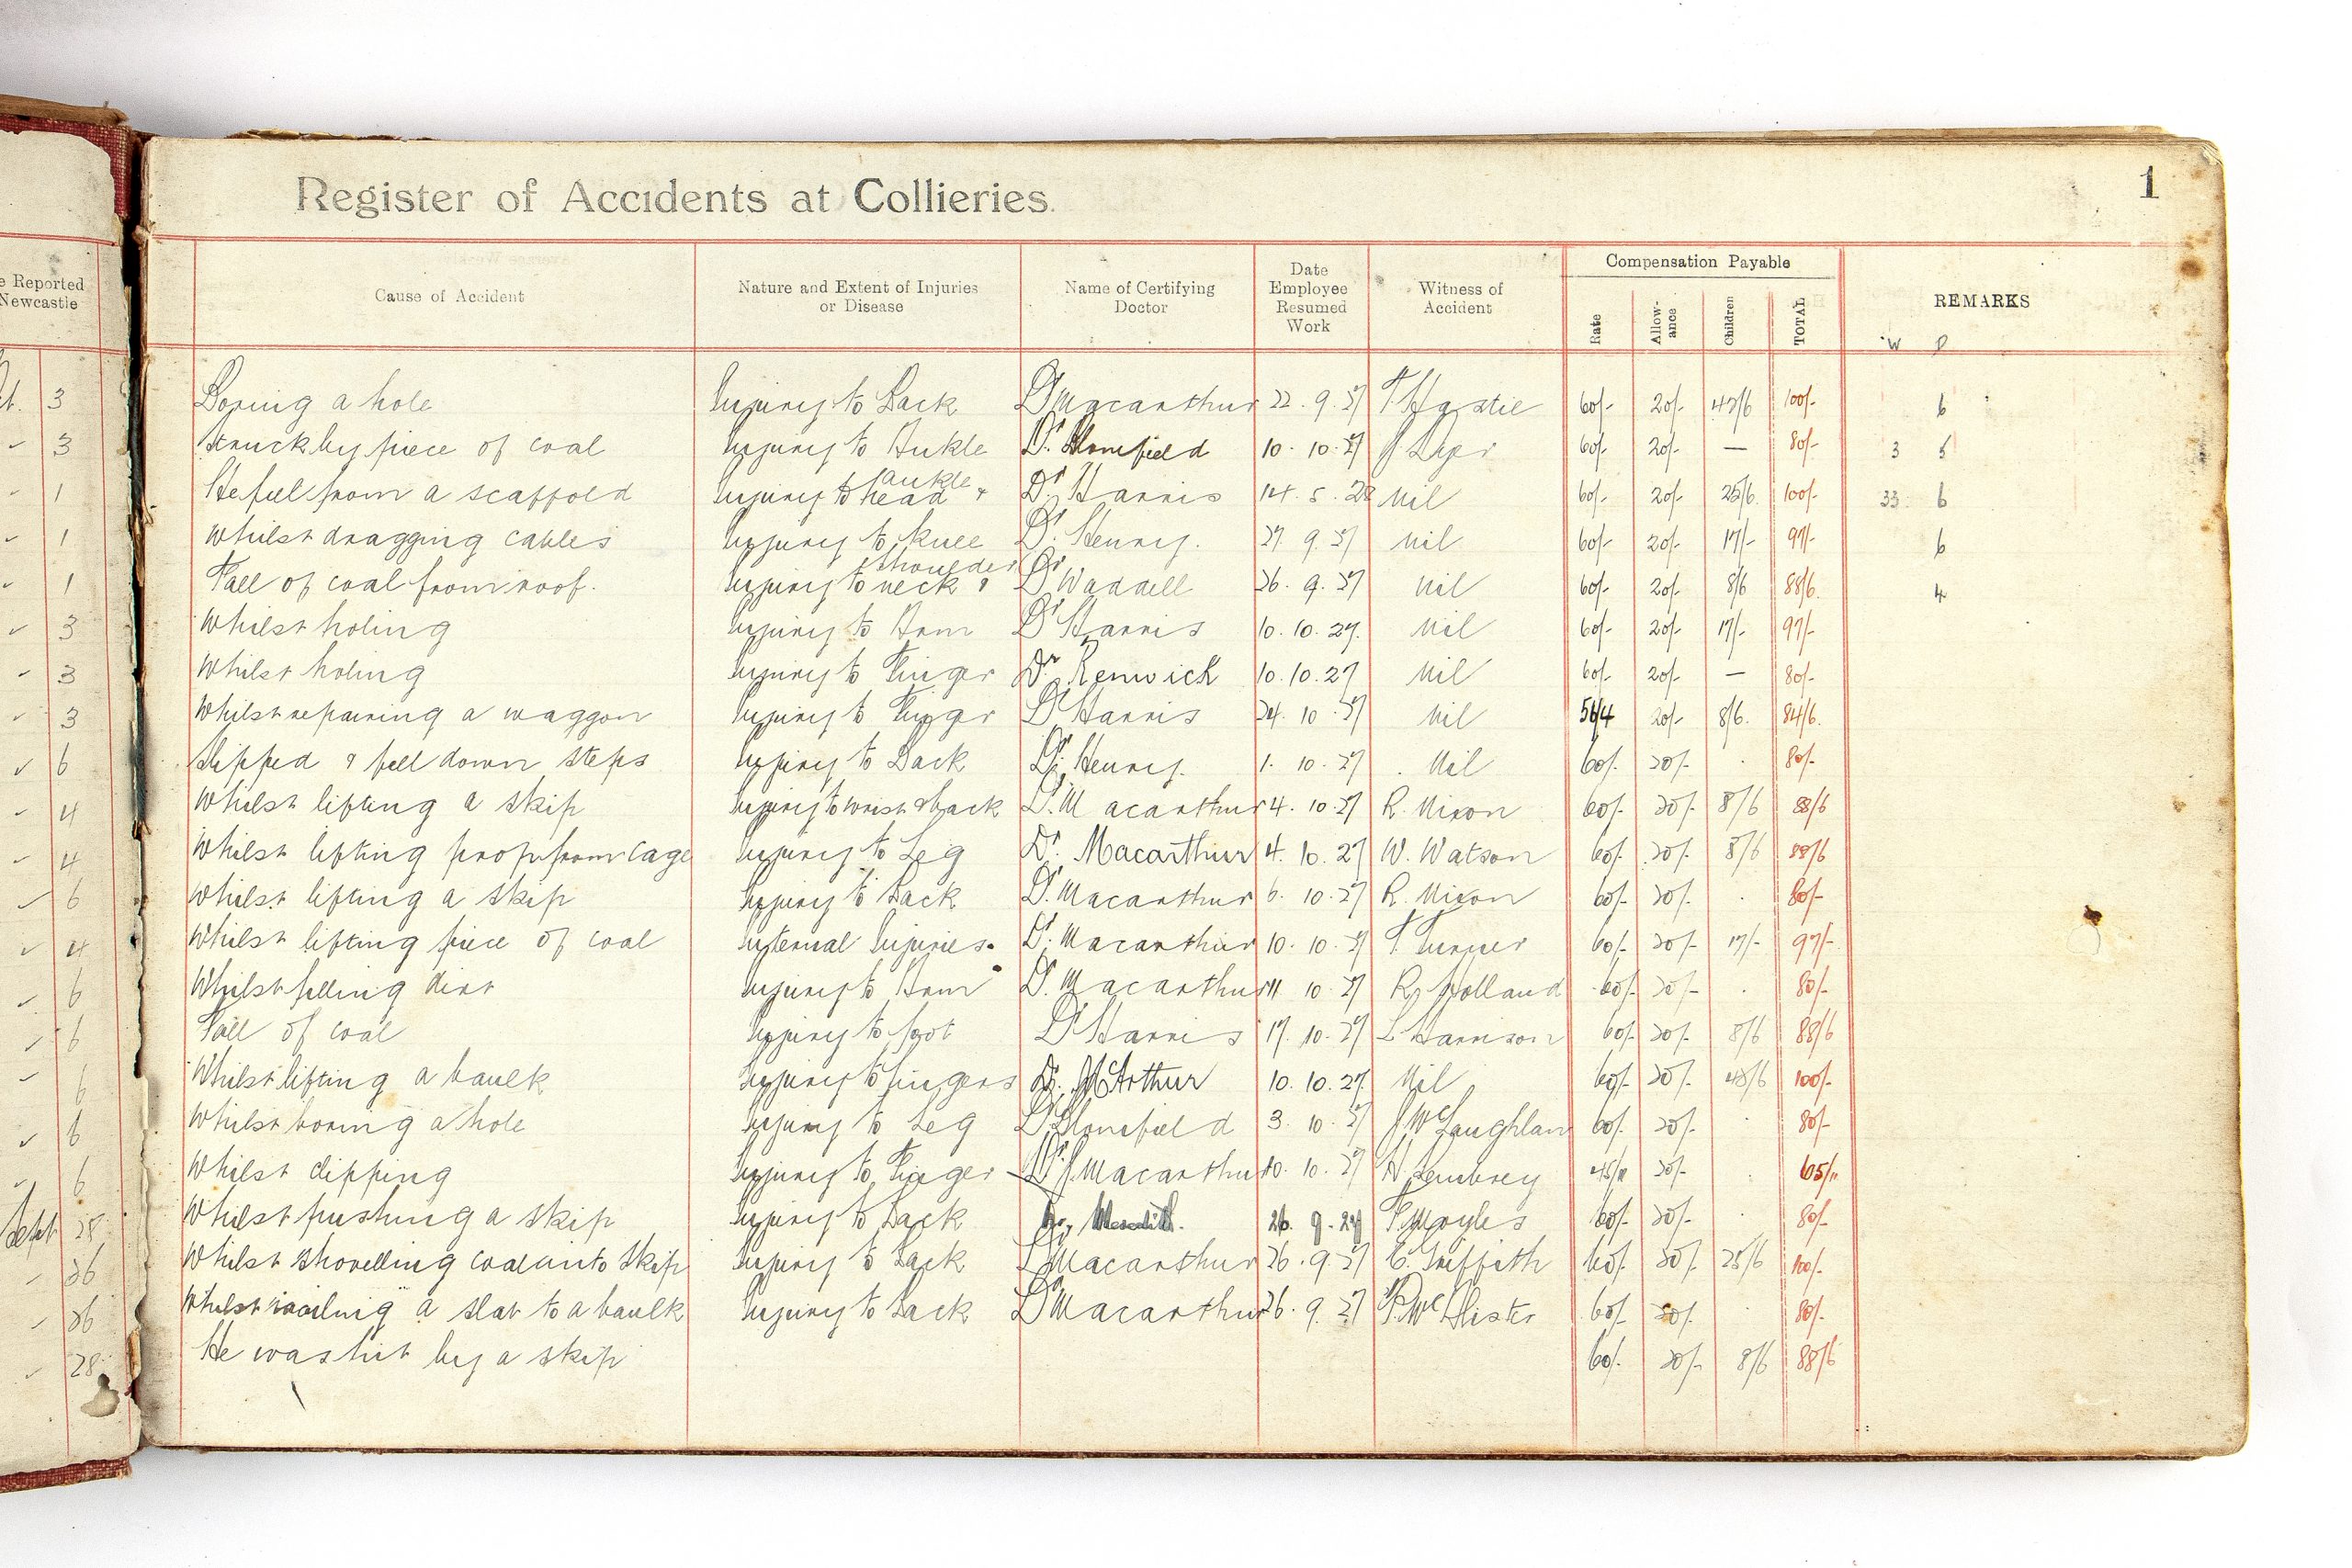 Register of Accidents at Collieries.
1
e Reported
Newcastle
Cause of Accident
Nature and Extent of Injuries
or Disease
Name of Certifying
Doctor
Date
Employee
Resumed
Work
Witness of
Accident
Compensation Payable
Rate
Allow-
ance
Children
TOTAL
REMARKS
W D
3 Boring a hole Injury to Back Dr Macarthur 22. 9. 27 T Hastie 60/- 20/- 100/- 6
3 Struck by piece of coal Injury to Ankle Dr. Blomfield 10. 10. 27 J 60/- 20/- — 80/- 3 5
ankle
1 He fell from a scaffold Injury to head & Dr. Harris 14. 5. 28 Nil 60/- 20/- 25/6 100/- 33 6
1 Whilst dragging cables Injury to Knee Dr. Henry. 27. 9. 27 Nil 60/- 20/- 17/- 97/- 6
shoulder
1 Fall of coal from roof. Injury to neck & Dr Waddell 26. 9. 27 Nil 60/- 20/- 8/6 88/6. 4
3 Whilst holing Injury to Arm Dr Harris 10. 10. 27. Nil 60/- 20/- 17/- 97/-
3 Whilst holing Injury to Finger Dr Renwick 10. 10. 27 Nil 60/- 20/- — 80/-
3 Whilst repairing a waggon Injury to Finger Dr Harris 24. 10. 27 Nil 20/- 8/6. 84/6.
6 Slipped & fell down steps Injury to Back Dr. Henry. 1. 10. 27 Nil 60/- 20/- . 80/-
4 Whilst lifting a skip Injury to wrist & back Dr. Macarthur 4. 10. 27 R. Nixon 60/- 20/- 8/6 88/6
4 Whilst lifting props from cage Injury to Leg Dr. Macarthur 4. 10. 27 W. Watson 60/- 20/- 8/6 88/6
6 Whilst lifting a skip Injury to Back Dr. Macarthur 6. 10. 27 R. Nixon 60/- 20/- . 80/-
4 Whilst lifting piece of coal Internal Injuries. Dr. Macarthur 10. 10. 27 T Turner 60/- 20/- 17/- 97/-
6 Whilst filling dirt Injury to Arm Dr. Macarthur 11 10. 27 R. Holland 60/- 20/- . 80/-
6 Fall of coal Injury to foot Dr Harris 17. 10. 27 L Harrison 60/- 20/- 8/6 88/6
6 Whilst lifting a baulk Injury to fingers Dr. McArthur 10. 10. 27. Nil 60/- 20/- 100/-
6 Whilst boring a hole Injury to Leg Dr Blomfield 3. 10. 27 J McLaughlan 60/- 20/- . 80/-
6 Whilst clipping Injury to Finger Dr J. Macarthur 10. 10. 27 H Pembrey 45/11 20/- . 65/11
Sept 28 Whilst pushing a skip Injury to Back Dr. Meredith. 26. 9. 27 F Moyles 60/- 20/- . 80/-
26 Whilst shovelling coal into skip Injury to Back Dr Macarthur 26. 9. 27 C. Griffith 60/- 20/- 25/6 100/-
26 Whilst nailing a slat to a baulk Injury to Back Dr Macarthur 26. 9. 27 60/- 20/- . 80/-
28 He was hit by a skip 60/- 20/- 8/6 88/6